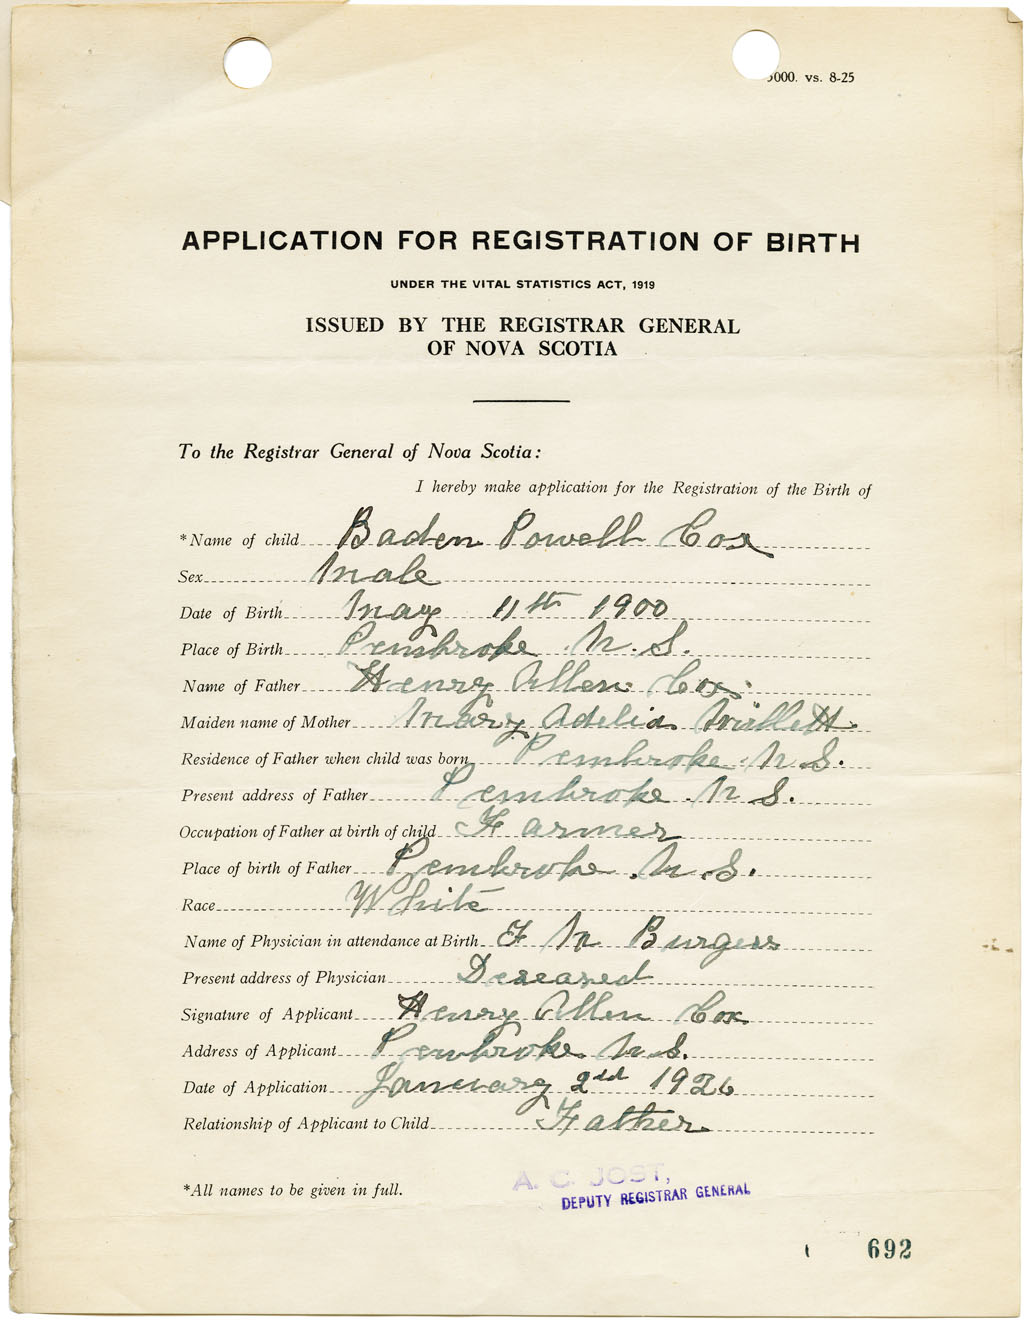 000. vs. 8-25
APPLICATION FOR REGISTRATION OF BIRTH
UNDER THE VITAL STATISTICS ACT, 1919
ISSUED BY THE REGISTRAR GENERAL
OF NOVA SCOTIA
To the Registrar General of Nova Scotia:
I hereby make application for the Registration of the Birth of
*Name of child Baden Powell Cox
Sex Male
Date of Birth May 11th 1900
Place of Birth Pembroke N.S.
Name of Father Henry Allen Cox
Maiden name of Mother Mary Adelia
Residence of Father when child was born Pembroke N.S.
Present address of Father Pembroke N S.
Occupation of Father at birth of child Farmer
Place of birth of Father Pembroke N.S.
Race White
Name of Physician in attendance at Birth F M Burgess
Present address of Physician Deseased
Signature of Applicant Henry Allen Cox
Address of Applicant Pembroke N.S.
Date of Application January 2nd 1926
Relationship of Applicant to Child Father
*All names to be given in full.
A. C. JOST,
DEPUTY REGISTRAR GENERAL
692